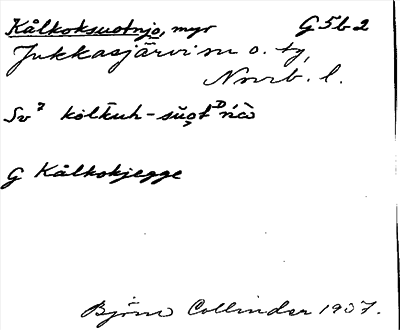 Kålkoksuotnjo, myr G5b2
Jukkasjärvi sn o. tg,
Norrb. l.
Sv² kòlkuh-sŭo̭t ᴰńà̀
G Kålkokjegge
Björn Collinder 1937.